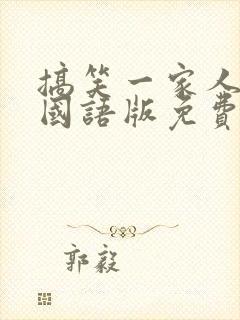 搞笑一家人
國語版免費
郭毅